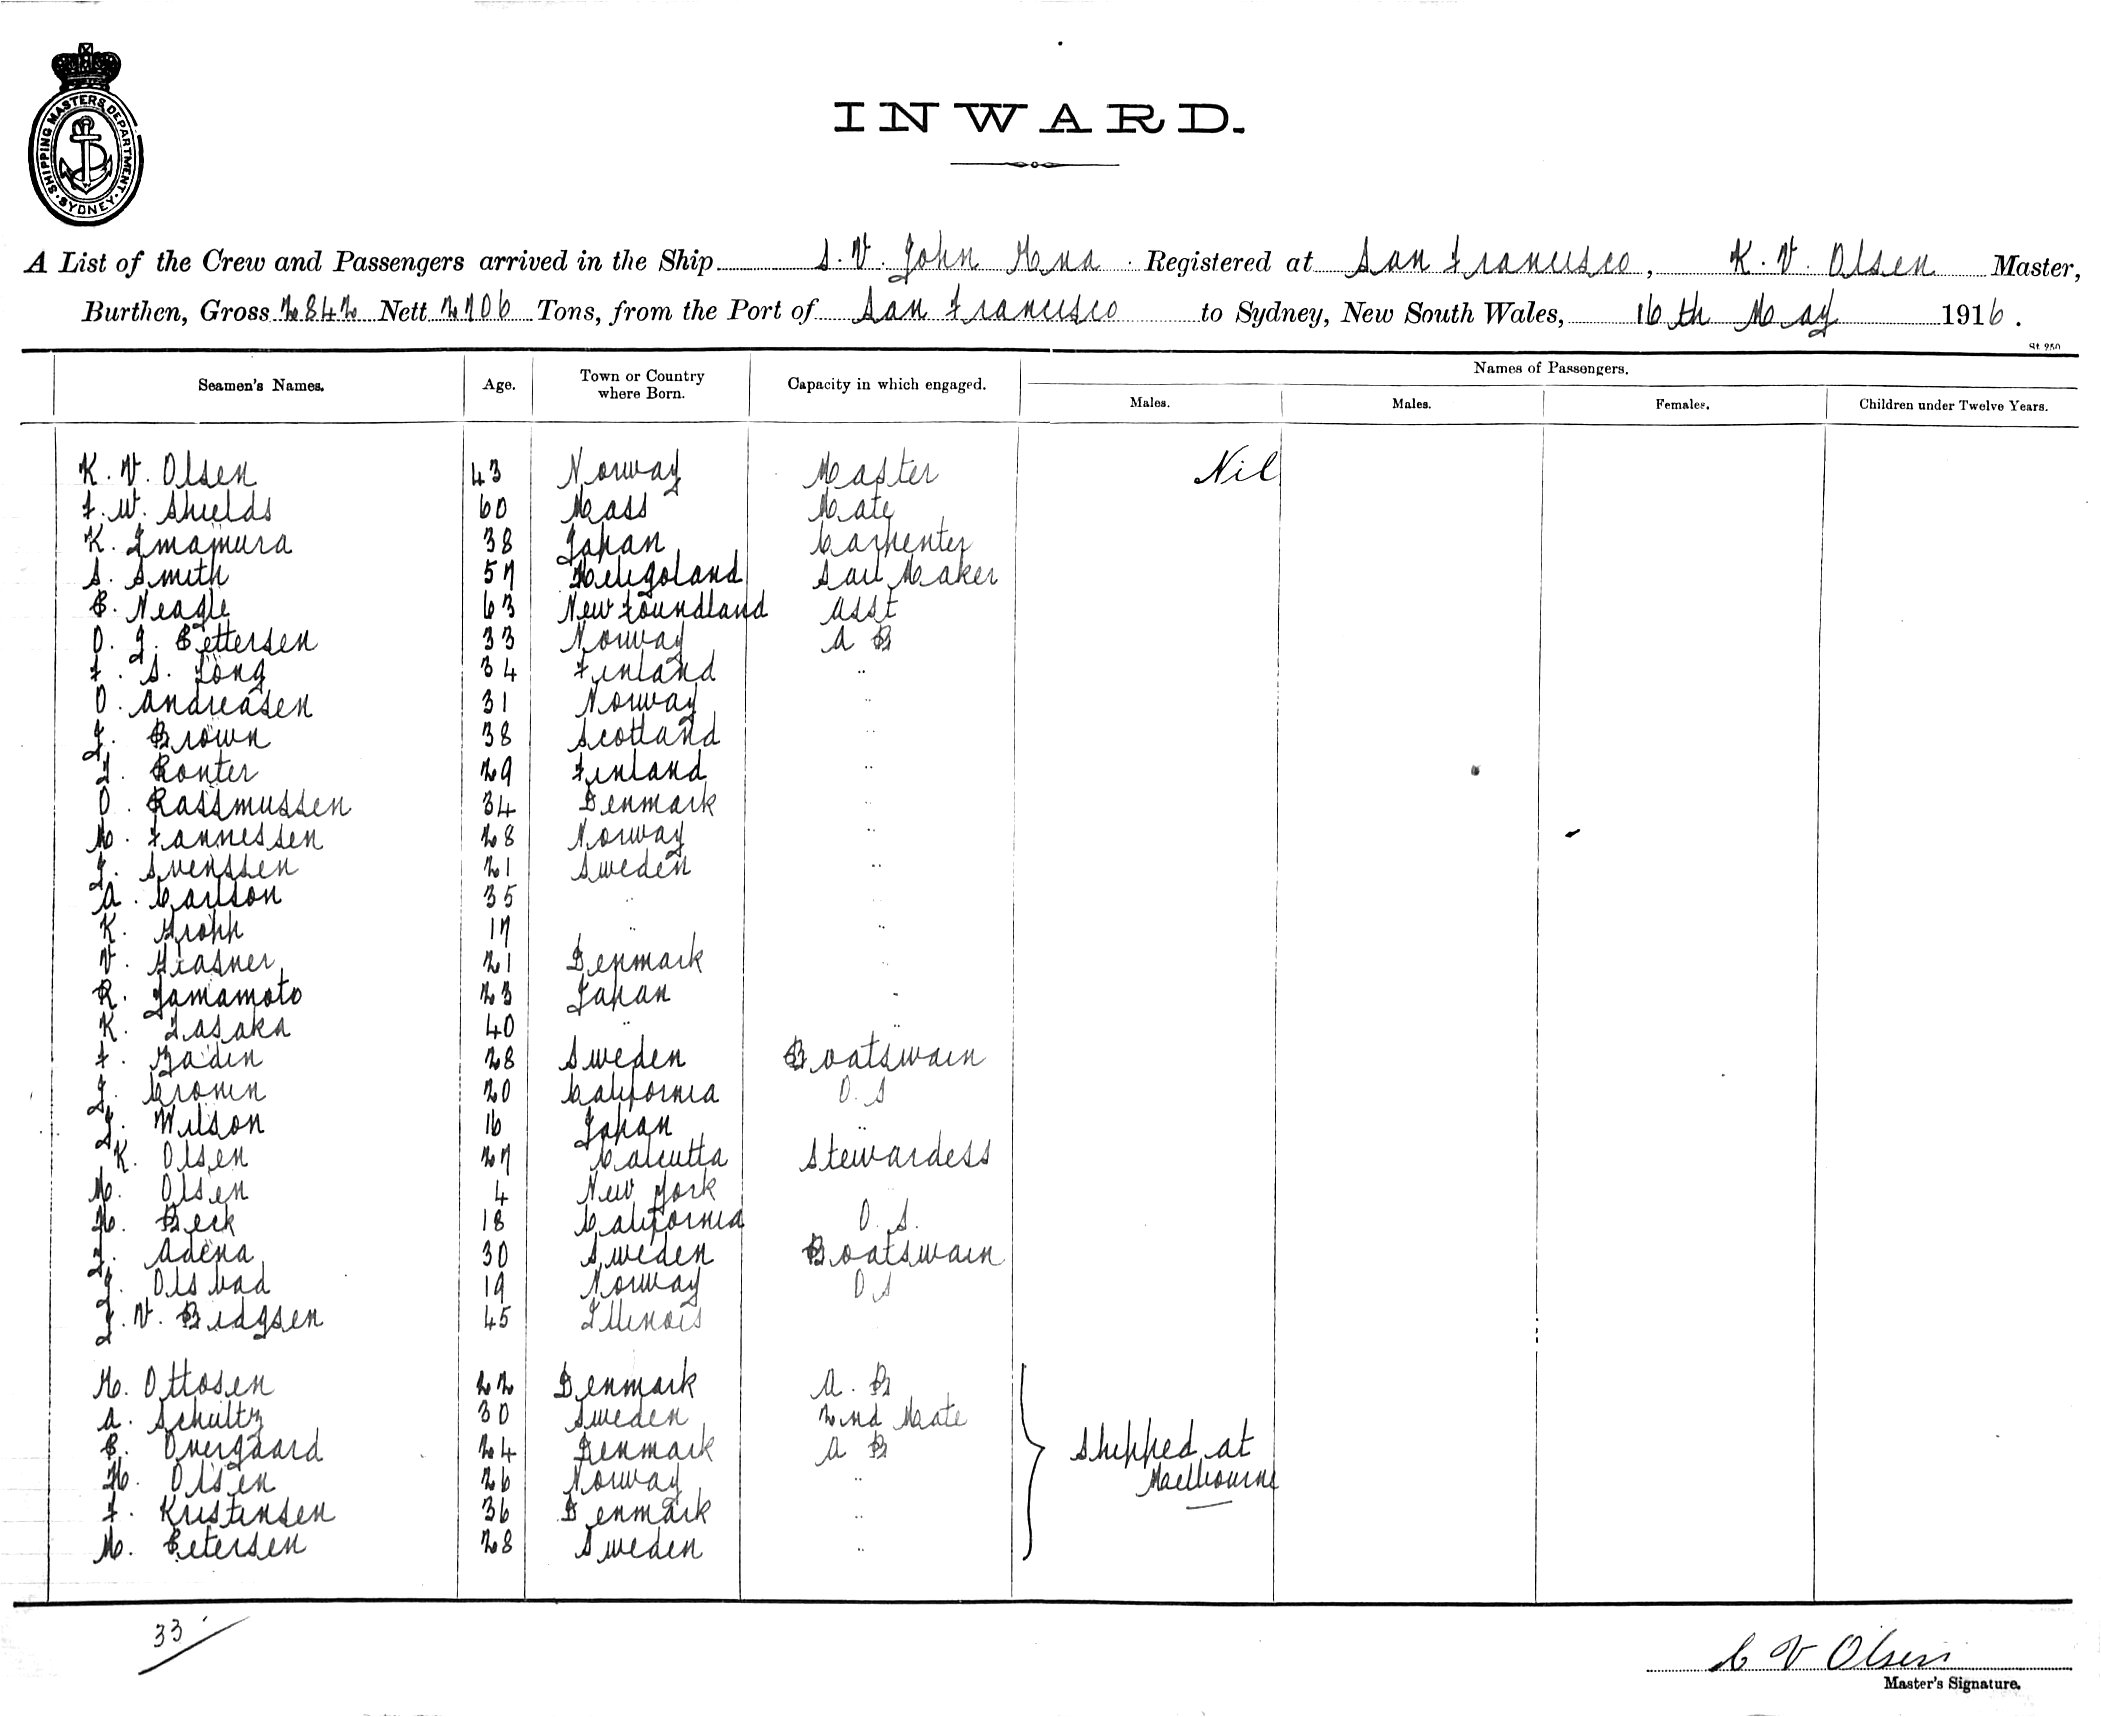 SHIPPING MASTERS DEPARTMENT. SYDNEY.
INWARD.
A List of the Crew and Passengers arrived in the Ship S. V. John Ena Registered at San Francisco, K. V. Olsen Master,
Burthen, Gross 2842 Nett 2706 Tons, from the Port of San Francisco to Sydney, New South Wales, 16th May 1916.
St. 250
Seamen's Names. Age. Town or Country where Born. Capacity in which engaged. Names of Passengers.
Males. Males. Females. Children under Twelve Years.
K. V. Olsen 43 Norway Master Nil
F. W. Shields 60 Mass Mate
K. Imamura 38 Japan Carpenter
S. Smith 57 Heligoland Sail Maker
P. Neagle 63 New Foundland Asst
O. J. Pettersen 33 Norway A B
F. S. Long 34 Finland "
O. Andreasen 31 Norway "
J. Brown 38 Scotland "
J. Ronter 29 Finland "
O. Rassmussen 34 Denmark "
M. Fannessen 28 Norway "
J. Svenssen 21 Sweden "
A. Carlson 35 " "
K. Gropp 17 " "
V. Grasner 21 Denmark "
R. Yamamoto 23 Japan "
K. Tasaka 40 " "
F. Zadin 28 Sweden Boatswain
J. Cronin 20 California O. S
J. Wilson 16 Japan "
K. Olsen 27 Calcutta Stewardess
M. Olsen 4 New York
H. Beck 18 California O. S.
J. Adena 30 Sweden Boatswain
J. Olsvad 19 Norway O S
J. V. Bidgsen 45 Illinois
H. Ottosen 22 Denmark A. B
A. Schultz 30 Sweden 2nd Mate
P. Overgaard 24 Denmark A B Shipped at
H. Olsen 26 Norway " Maelbourne
F. Kristensen 36 Denmark "
M. Petersen 28 Sweden "
33
C V Olsen
Master's Signature.